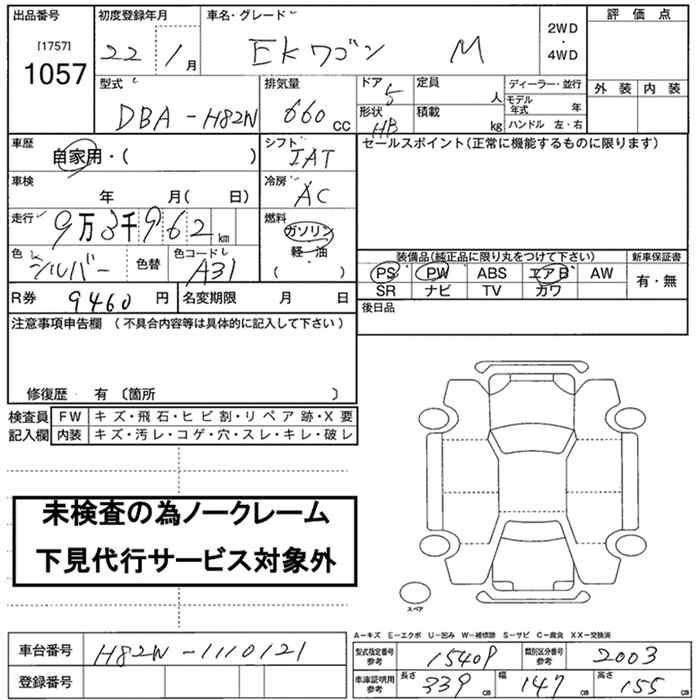 出品番号 初度登録年月 車名・グレード 評価点
[1757] 22 / 1月 EKワゴン M 2WD・4WD
1057
型式 排気量 ドア 5 定員 人 ディーラー・並行 外装 内装
DBA-H82W 660cc 形状 HB 積載 kg モデル年式 年
ハンドル 左・右
車歴 自家用・( ) シフト IAT セールスポイント(正常に機能するものに限ります)
車検 年 月( 日) 冷房 AC
走行 9万3千962km 燃料 ガソリン 軽・油 ( )
色 シルバー 色替 色コード A31 装備品(純正品に限り丸をつけて下さい) 新車保証書
PS PW ABS エアB AW 有・無
SR ナビ TV カワ
R券 9460円 名変期限 月 日 後日品
注意事項申告欄 (不具合内容等は具体的に記入して下さい)
修復歴 有 〔箇所 〕
検査員 FW キズ・飛石・ヒビ割・リペア跡・X要
記入欄 内装 キズ・汚レ・コゲ・穴・スレ・キレ・破レ
未検査の為ノークレーム
下見代行サービス対象外
スペア
A-キズ E-エクボ U-凹み W-補修跡 S-サビ C-腐食 XX-交換済
車台番号 H82W-1110121 型式指定番号 参考 15409 類別区分番号 参考 2003
登録番号 車庫証明用 参考 長さ 339cm 幅 147cm 高さ 155cm